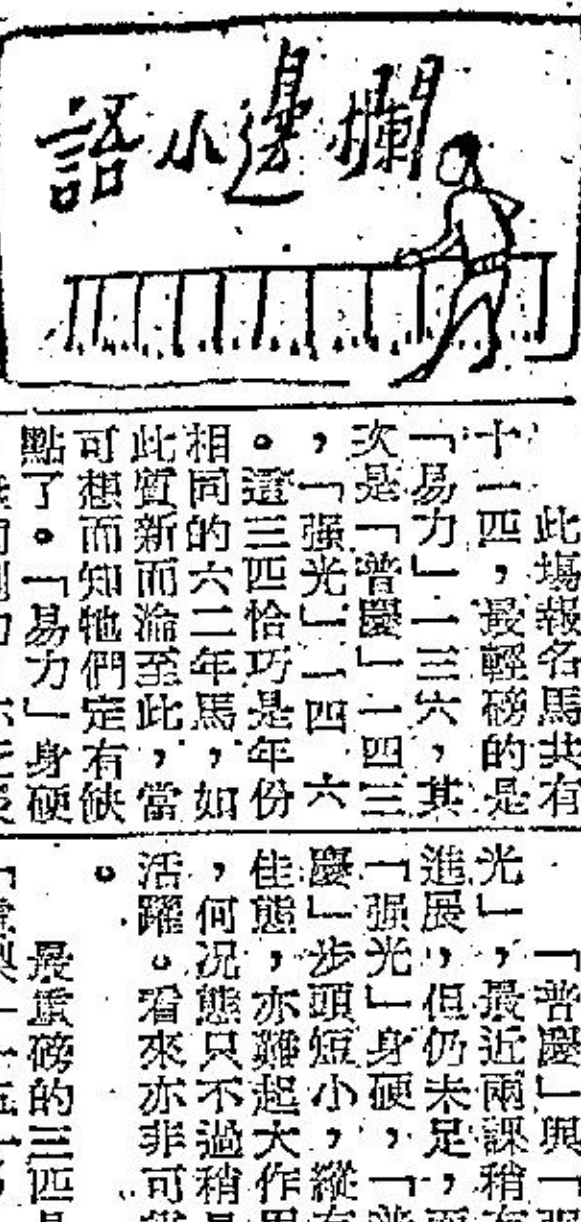 欄邊小語
此塲報名馬共有
十一匹，最輕磅的是
「易力」一三六，其
次是「普慶」一四三
，「强光」一四六
。這三匹恰巧是年份
相同的六二年馬，如
此質新而淪至此，當
可想而知牠們定有缺
點了。「易力」身硬
「普慶」與「强
光」，最近兩課稍有
進展，但仍未足，而
「强光」身硬，「普
慶」步頭短小，縱有
佳態，亦難起大作用
，何况態只不過稍
活躍。看來亦非可
。
最重磅的三匹